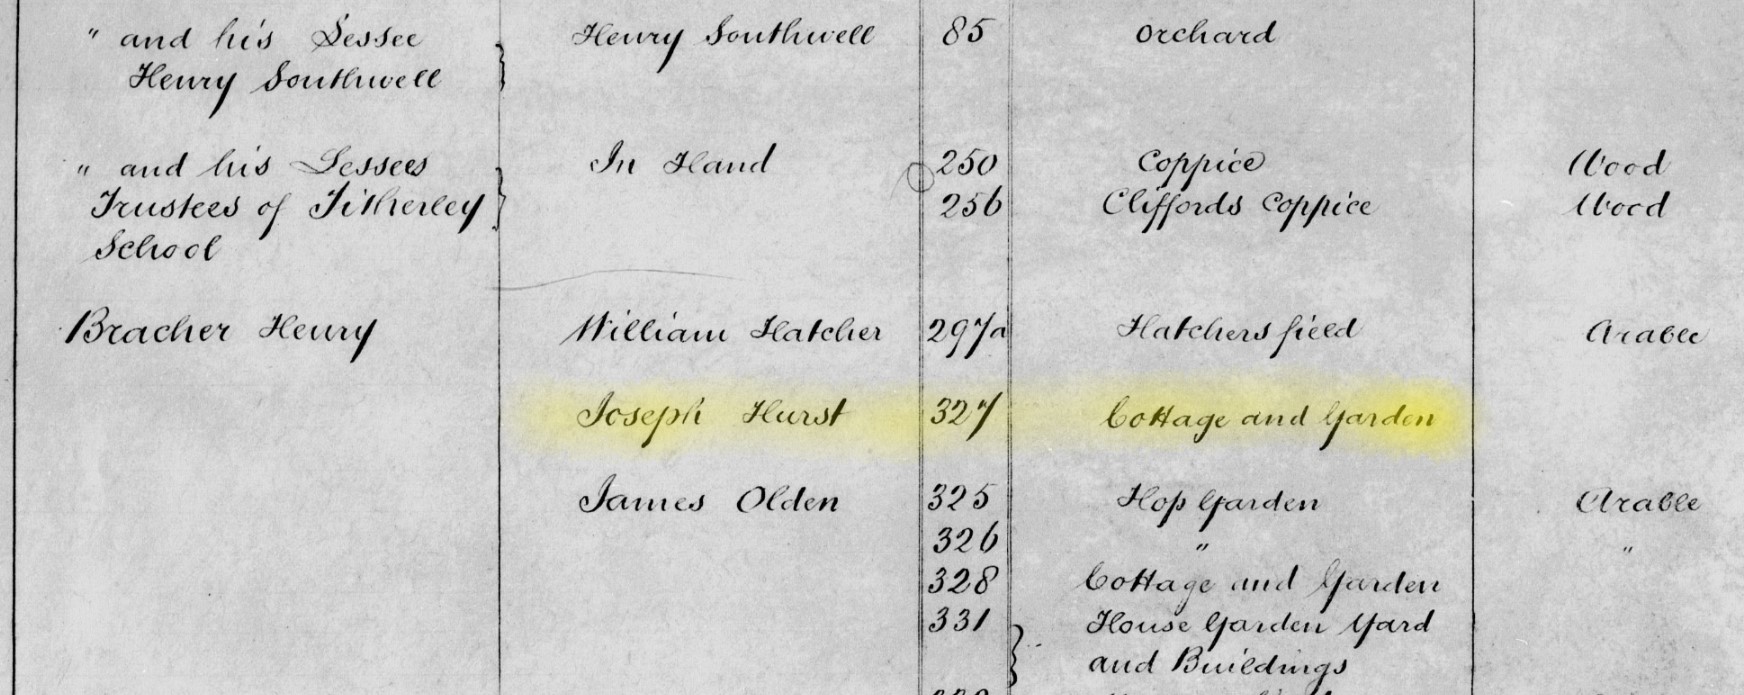 " and his Lessee } Henry Southwell 85 Orchard
Henry Southwell
" and his Lessees } In Hand 250 Coppice Wood
Trustees of Titherley 256 Cliffords Coppice Wood
School
Bracher Henry William Hatcher 297a Hatchers field Arable
Joseph Hurst 327 Cottage and Garden
James Olden 325 Hop Garden Arable
326 " "
328 Cottage and Garden
331 } House Garden Yard
and Buildings